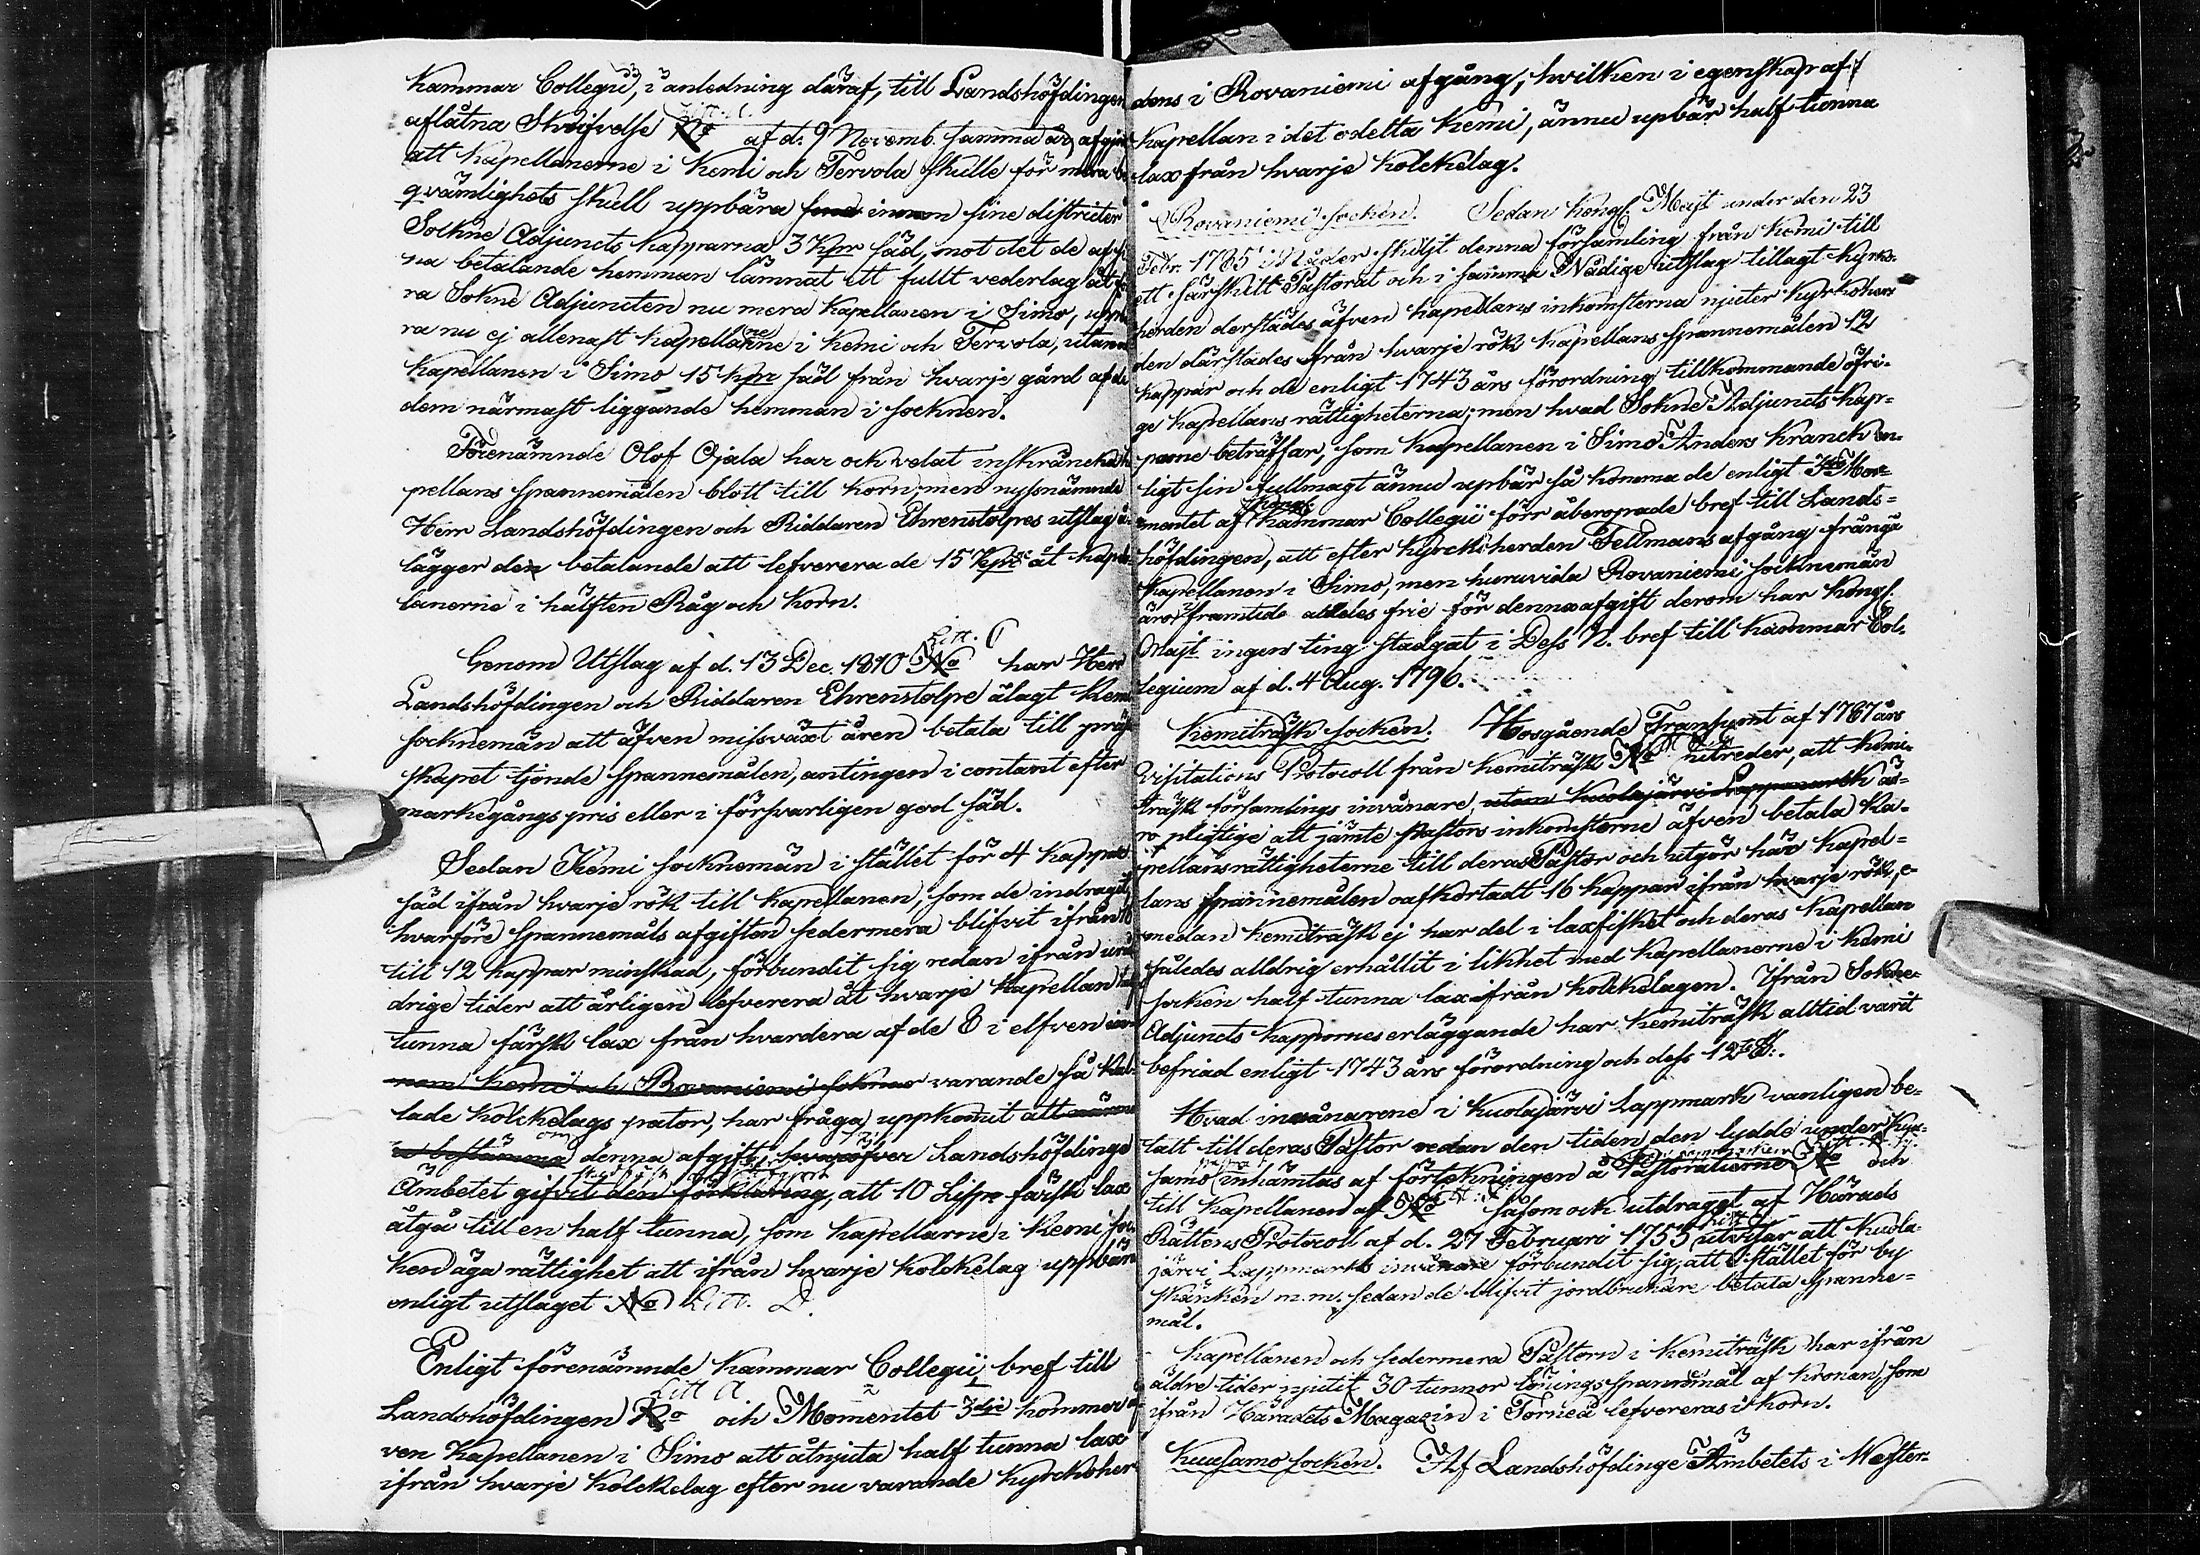 Kammar Collegii, i anledning däraf, till Landshöfdingen
aflåtna Skrifvelse No af d. 9 Novemb. samma år,
att Kapellanerne i Kemi och Tervola skulle för mera
qvämlighets skull uppbära innom sine districter
Sokne Adjuncts kapparna 3 Kpr säd, mot det de
na betalande hemman lämnat ett fullt vederlag åt
ra Sokne Adjuncten nu mera Kapellanen i Simo,
ra nu ej allenast Kapellanerne i Kemi och Tervola, utan
Kapellanen i Simo 15 Kpr säd från hvarje gård af de
dem närmast liggande hemman i socknen.
Förenämnde Olof Ojala har ock velat inskräncka
pellans spannemålen blott till korn; men nyssnämnde
Herr Landshöfdingen och Riddaren Ehrenstolpes utslag å-
lägger den betalande att lefverera de 15 Kpr åt kapel-
lanerne i hälften Råg och Korn.
Litt. C
Genom Utslag af d. 13 Dec. 1810 No har Herr
Landshöfdingen och Riddaren Ehrenstolpe ålagt Kemi
socknemän att äfven missväxt åren betala till
skapet tjonde spannemålen, antingen i contant efter
markegångs pris eller i försvarligen god säd.
Sedan Kemi socknemän i stället för 4 kappar
säd ifrån hvarje rök till Kapellanen, som de indragit,
hvarföre spannemåls afgiften sedermera blifvit ifrån 16
till 12 kappar minskad, förbundit sig redan ifrån
drige tider att årligen lefverera åt hvarje Kapellan
tunna färsk lax från hvardera af de 8 i elfven
nom Kemi och Rovaniemi soknar varande så kal-
lade kolckelags pator, har fråga uppkomit att
bestämma om denna afgift, hvaröfver Landshöfdinge
Ämbetet gifvit den förklaring, att 10 Lispr färsk lax
åtgå till en half tunna, som Kapellarne i Kemi soc-
ken äga rättighet att ifrån hvarje kolckelag uppbära
enligt utslaget No Litt. D.
Enligt förenämnde Kammar Collegii bref till
Litt A
Landshöfdingen No och Momentet 3dje kommer äf-
ven Kapellanen i Simo att åtnjuta half tunna lax
ifrån hvarje Kolckelag efter nu varande Kyrckoher-
dens i Rovaniemi afgång, hvilken i egenskap af
Kapellan i det odelta Kemi, ännu upbär half tunna
lax från hvarje kolckelag.
Rovaniemi socken. Sedan Kongl. Majt under den 23
Febr. 1785 i Nåder skiljt denna församling från Kemi till
ett särskilt Pastorat och i samma Nådige utslag tillagt Kyrko-
herden derstädes äfven Kapellans inkomsterna njuter Kyrkoher-
den därstädes ifrån hvarje rök Kapellans spannemålen 12
kappar och de enligt 1743 års förordning tillkommande öfri-
ge Kapellans rättigheterna; men hvad Sokne Adjuncts kap-
parne beträffar, som Kapellanen i Simo Anders Kranck en-
ligt sin fullmagt ännu upbär så komma de enligt Mo-
mentet af Kammar Collegii förr åberopade bref till Lands-
höfdingen, att efter Kyrckoherden Fellmans afgång frångå
Kapellanen i Simo, men huruvida Rovaniemi socknemän
äro framtide alldeles frie för denna afgift derom har Kongl.
Majt ingen ting stadgat i Dess N. bref till Kammar Col-
legium af d. 4 Aug. 1796.
Kemiträsk socken. Hosgående Transumt af 1767 års
Visitations Protocoll från Kemiträsk No utreder, att Kemi-
träsk församlings invånare, utom Kuolajärvi Lappmark ä-
ro pligtige att jämte Pastors inkomsterne äfven betala Ka-
pellansrättigheterne till deras Pastor och utgör här Kapel-
lans spannemålen oafkortadt 16 kappar ifrån hvarje rök, e-
medan Kemiträsk ej har del i laxfisket och deras Kapellan
således alldrig erhållit i likhet med Kapellanerne i Kemi
socken half tunna lax ifrån kolckelagen. Ifrån Sokne-
Adjuncts kappornes erläggande har Kemiträsk alltid varit
befriad enligt 1743 års förordning och dess 12te §.
Hvad invånarene i Kuolajärvi Lappmark vanligen be-
talt till deras Pastor redan den tiden den lydde under Kuu-
samo inhämtas af förtekningen å Pastoratierne No och
till Kapellanen af No såsom ock utdraget af Härads
Rättens Protocoll af d. 27 Februari 1755 utvisar att Kuola-
järvi Lappmarks invånare förbundit sig, att i stället för by
skänken m.m. sedan de blifvit jordbrukare betala spanne-
mål.
Kapellanen och sedermera Pastorn i Kemiträsk har ifrån
äldre tider njutit 30 tunnor lönings spannmål af Kronan, som
ifrån Häradets Magazin i Torneå lefvereras i korn.
Kuusamo socken. Af Landshöfdinge Ämbetets i Wester-